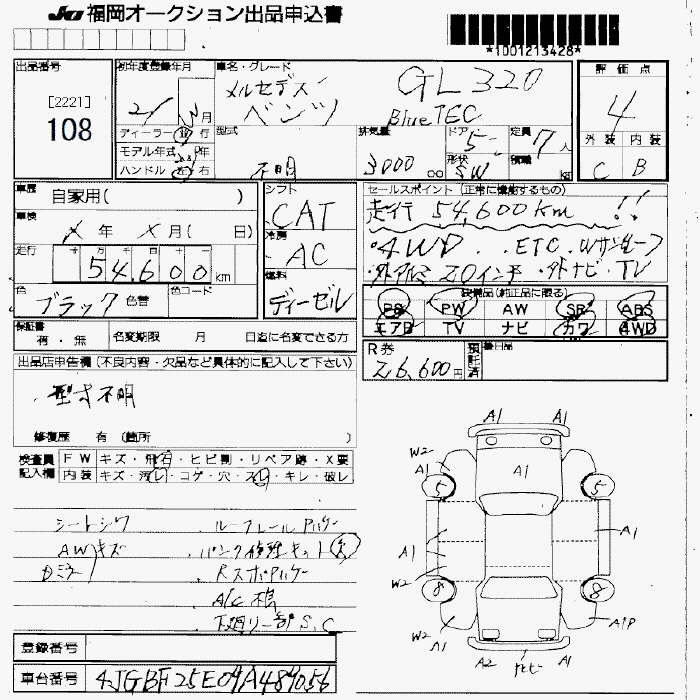 JU 福岡オークション出品申込書
*1001213428*
出品番号 初年度登録年月 車名・グレード 評価点
[2221]
108
21 年 月
メルセデス
ベンツ
GL320
BlueTEC
4
ディーラー 並行 型式 排気量 ドア 定員 外装 内装
モデル年式 年 不明 3000 cc 5 7人 C B
ハンドル 左 右 形状 SW 積載 kg
車歴 自家用( ) シフト セールスポイント (正常に機能するもの)
CAT
走行 54,600km !!
車検 X 年 X 月( 日) 冷房
AC
・4WD ・ETC ・Wサンルーフ
走行 十 万 千 百 十 一
54,600 km
・外アルミ20インチ ・外ナビ・TV
燃料
ディーゼル
色 ブラック 色替 色コード
装備品(純正品に限る)
PS PW AW SR ABS
エアB TV ナビ カワ 4WD
保証書
有・無 名変期限 月 日迄に名変できる方
R券 預託済 後日品
26,600円
出品店申告欄(不良内容・欠品など具体的に記入して下さい)
・型式不明
修復歴 有 (箇所 )
検査員 FW キズ・飛石・ヒビ割・リペア跡・X要
記入欄 内装 キズ・汚レ・コゲ・穴・スレ・キレ・破レ
シートシワ ・ルーフレールハゲ
AWキズ ・パンク修理キット欠
Dミラー ・RスポAハゲ
・A/C 不良
・下廻り一部S,C
A1 A1
W2
A1 A1
5 5
A1 A1
W2
8 8
W2
A1 A1P
A2 A1
登録番号
車台番号 4JGBF25E09A489056